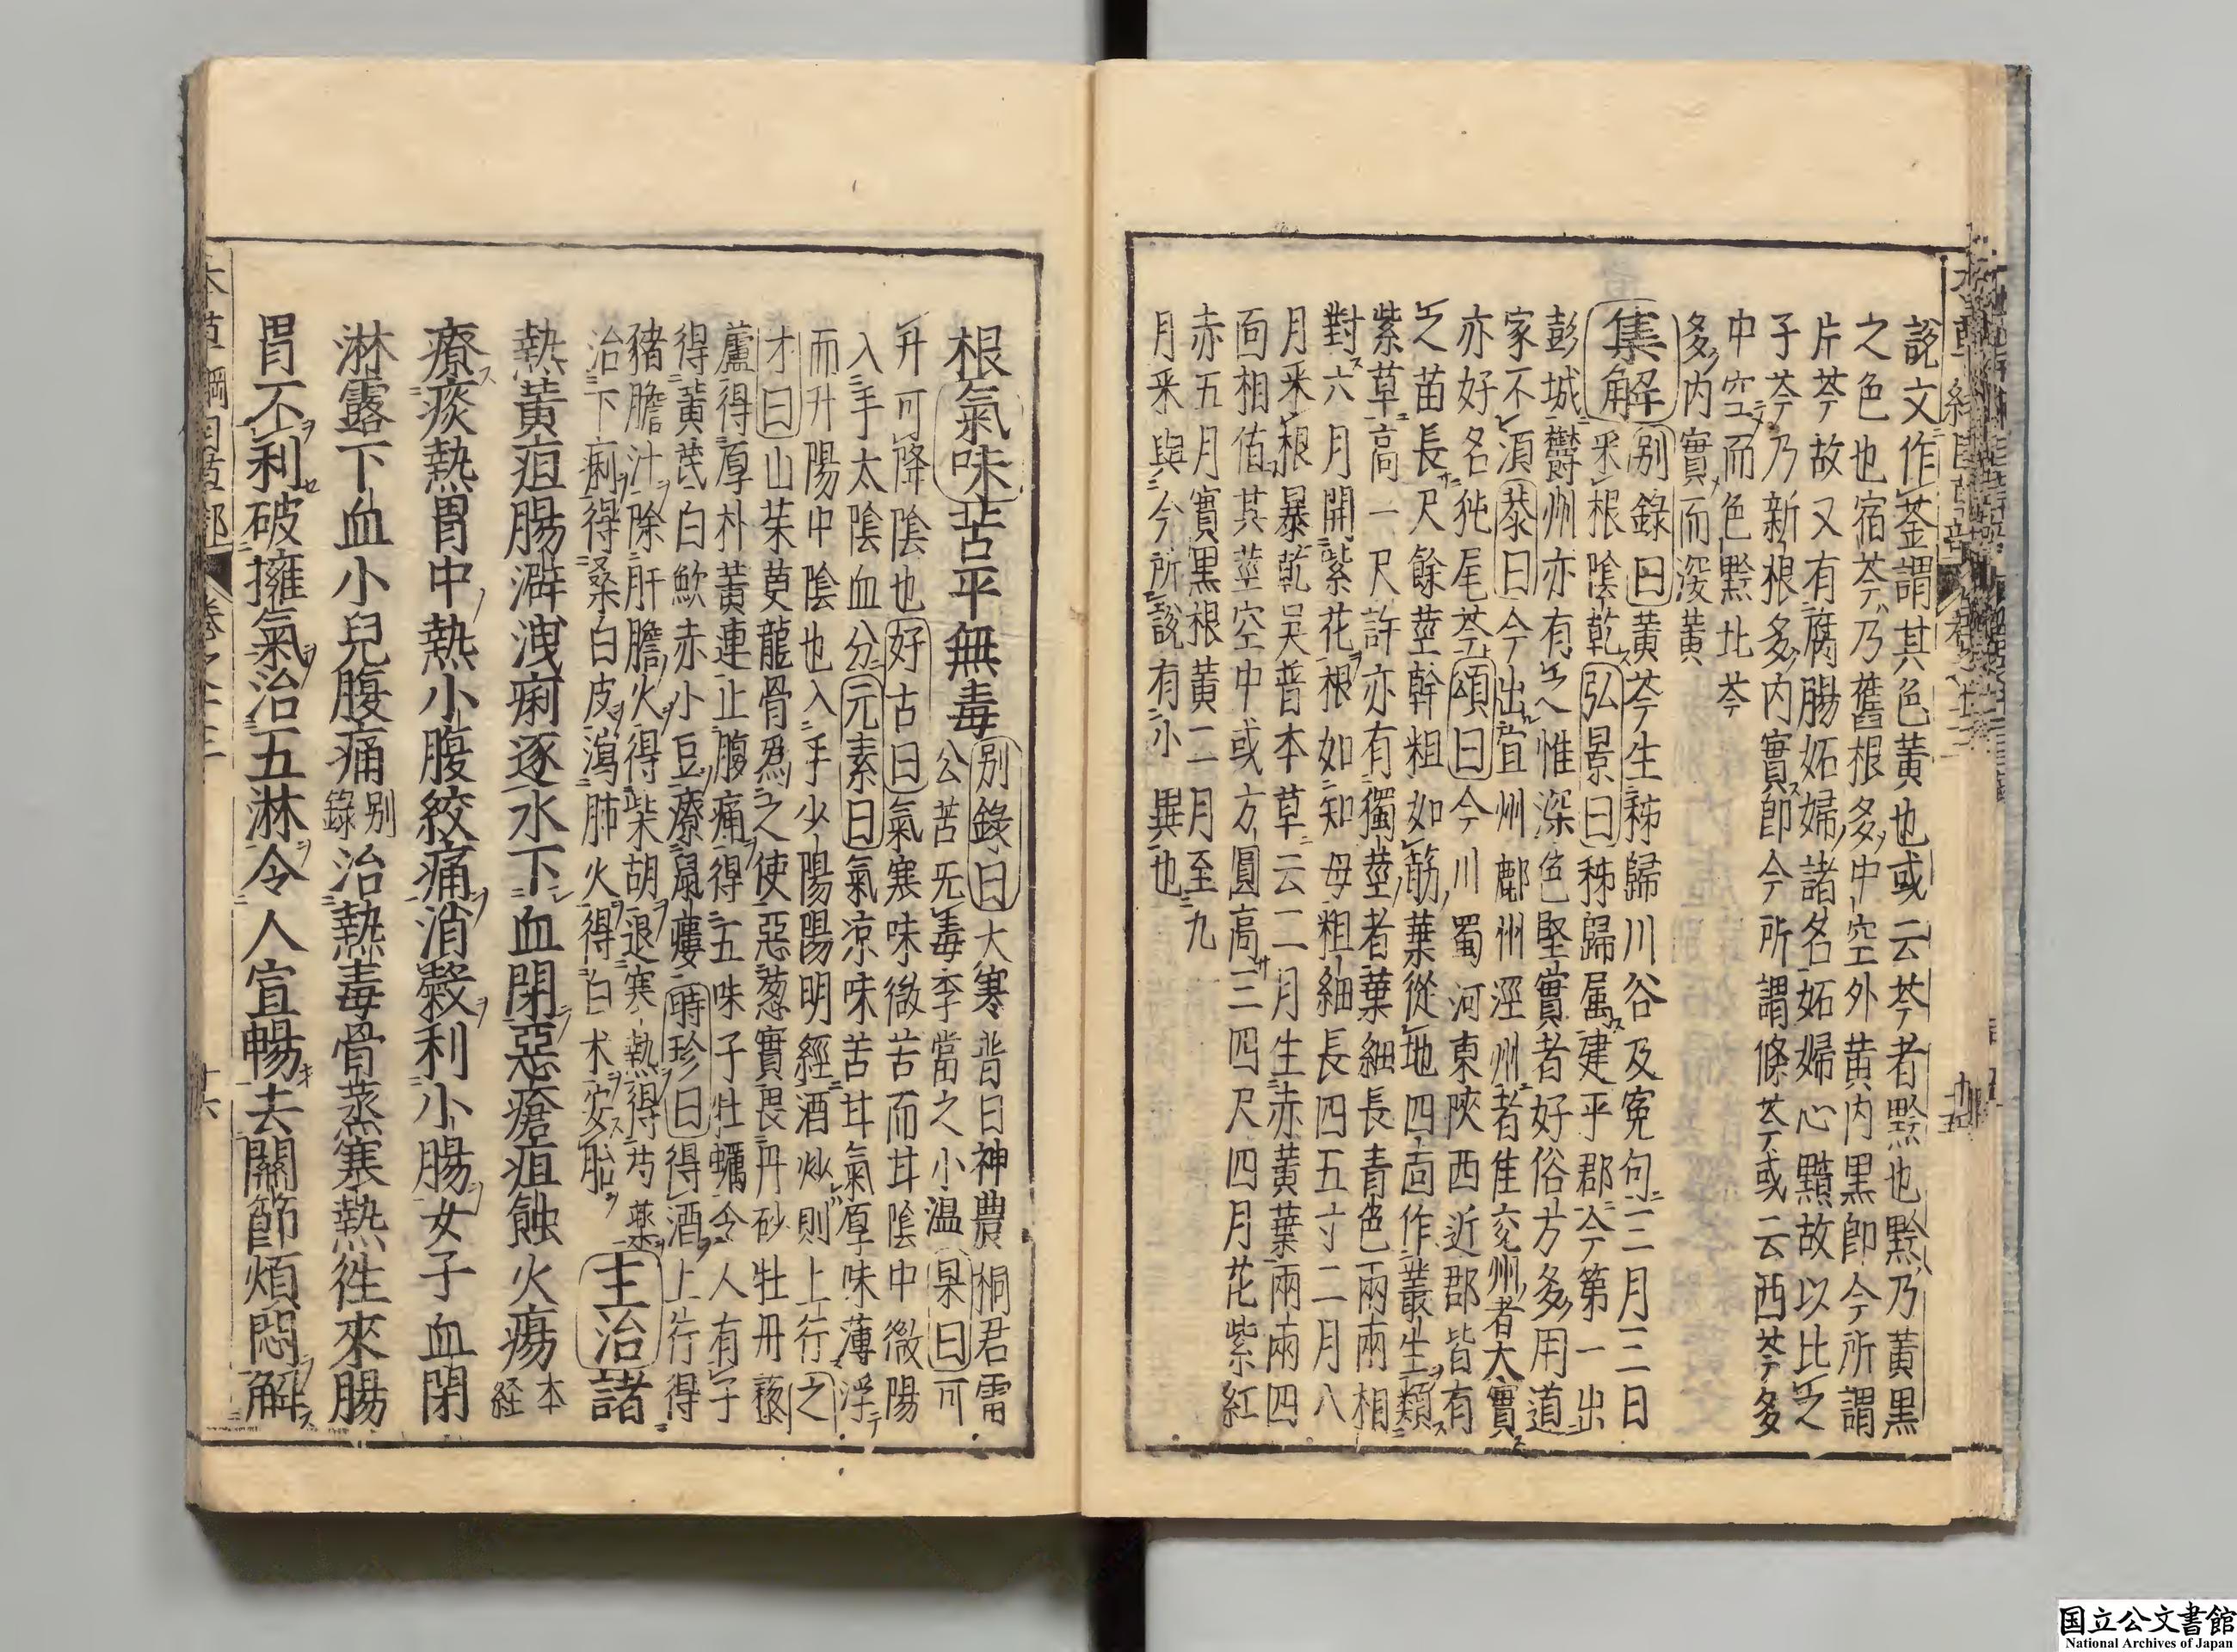 說文作菳謂其色黃也或云芩者黔也黔乃黃黑
之色也宿芩乃舊根多中空外黄内黒即今所謂
片芩故又有腐腸妬婦諸名妬婦心黯故以比之
子芩乃新根多内實即今所謂條芩或云西芩多
中空而色黔北芩
多内實而深黃
集解别錄曰黃芩生秭歸川谷及寃句三月三日
采根陰乾弘景曰秭歸属建平郡今第一出
彭城欝州亦有之惟深色堅實者好俗方多用道
家不須恭曰今出宜州鄜州涇州者佳兖州者大實
亦好名㹠尾芩頌曰今川蜀河東陜西近郡皆有
之苗長尺餘莖幹粗如筯葉從地四靣作叢生類
紫草高一尺許亦有獨莖者葉細長青色兩兩相
對六月開紫花根如知母粗細長四五寸二月八
月釆根暴乾吴普本草云二月生赤黃葉兩兩四
靣相值其莖空中或方圓高三四尺四月花紫紅
赤五月實黒根黃二月至九
月釆與今所說有小異也
根氣味苦平無毒别錄曰大寒普曰神農桐君雷
公苦旡毒李當之小溫杲曰可
升可降陰也好古曰氣寒味微苦而甘陰中微陽
入手太陰血分元素曰氣凉味苦甘氣厚味薄浮
而升陽中陰也入手少陽陽明經酒炒則上行之
才曰山茱萸龍骨爲之使惡葱實畏丹砂牡丹藜
蘆得厚朴黃連止腹痛得五味子牡蠣令人有子
得黃芪白歛赤小豆療鼠瘻時珍曰得酒上行得
豬膽汁除肝膽火得柴胡退寒熱得芍藥
治下痢得桑白皮瀉肺火得白术安胎主治諸
熱黄疸腸澼洩痢逐水下血閉惡瘡疽蝕火瘍本経
療痰熱胃中熱小腹絞痛消穀利小腸女子血閉
淋露下血小兒腹痛别錄治熱毒骨蒸寒熱徃來腸
胃不利破擁氣治五淋令人宣暢去關節煩悶解
国立公文書館
National Archives of Japan